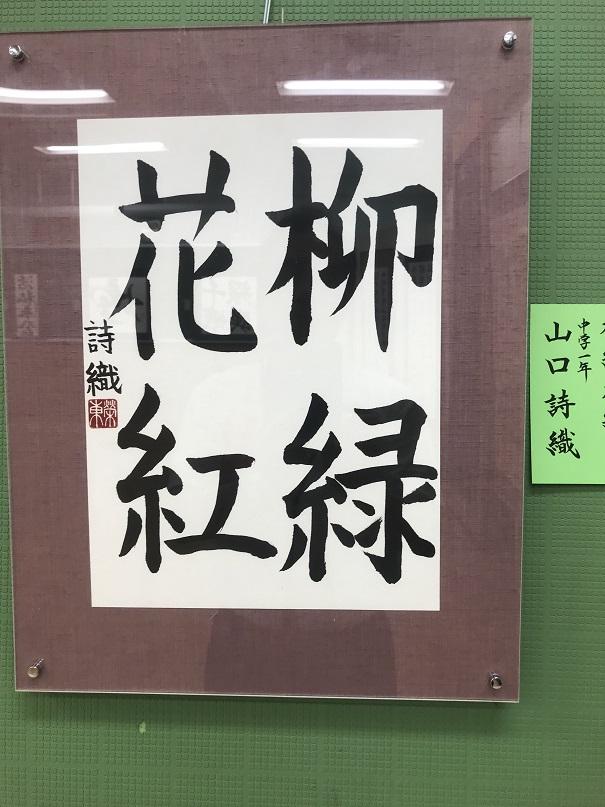 柳緑
花紅
詩織
榮東
中学一年
山口詩織